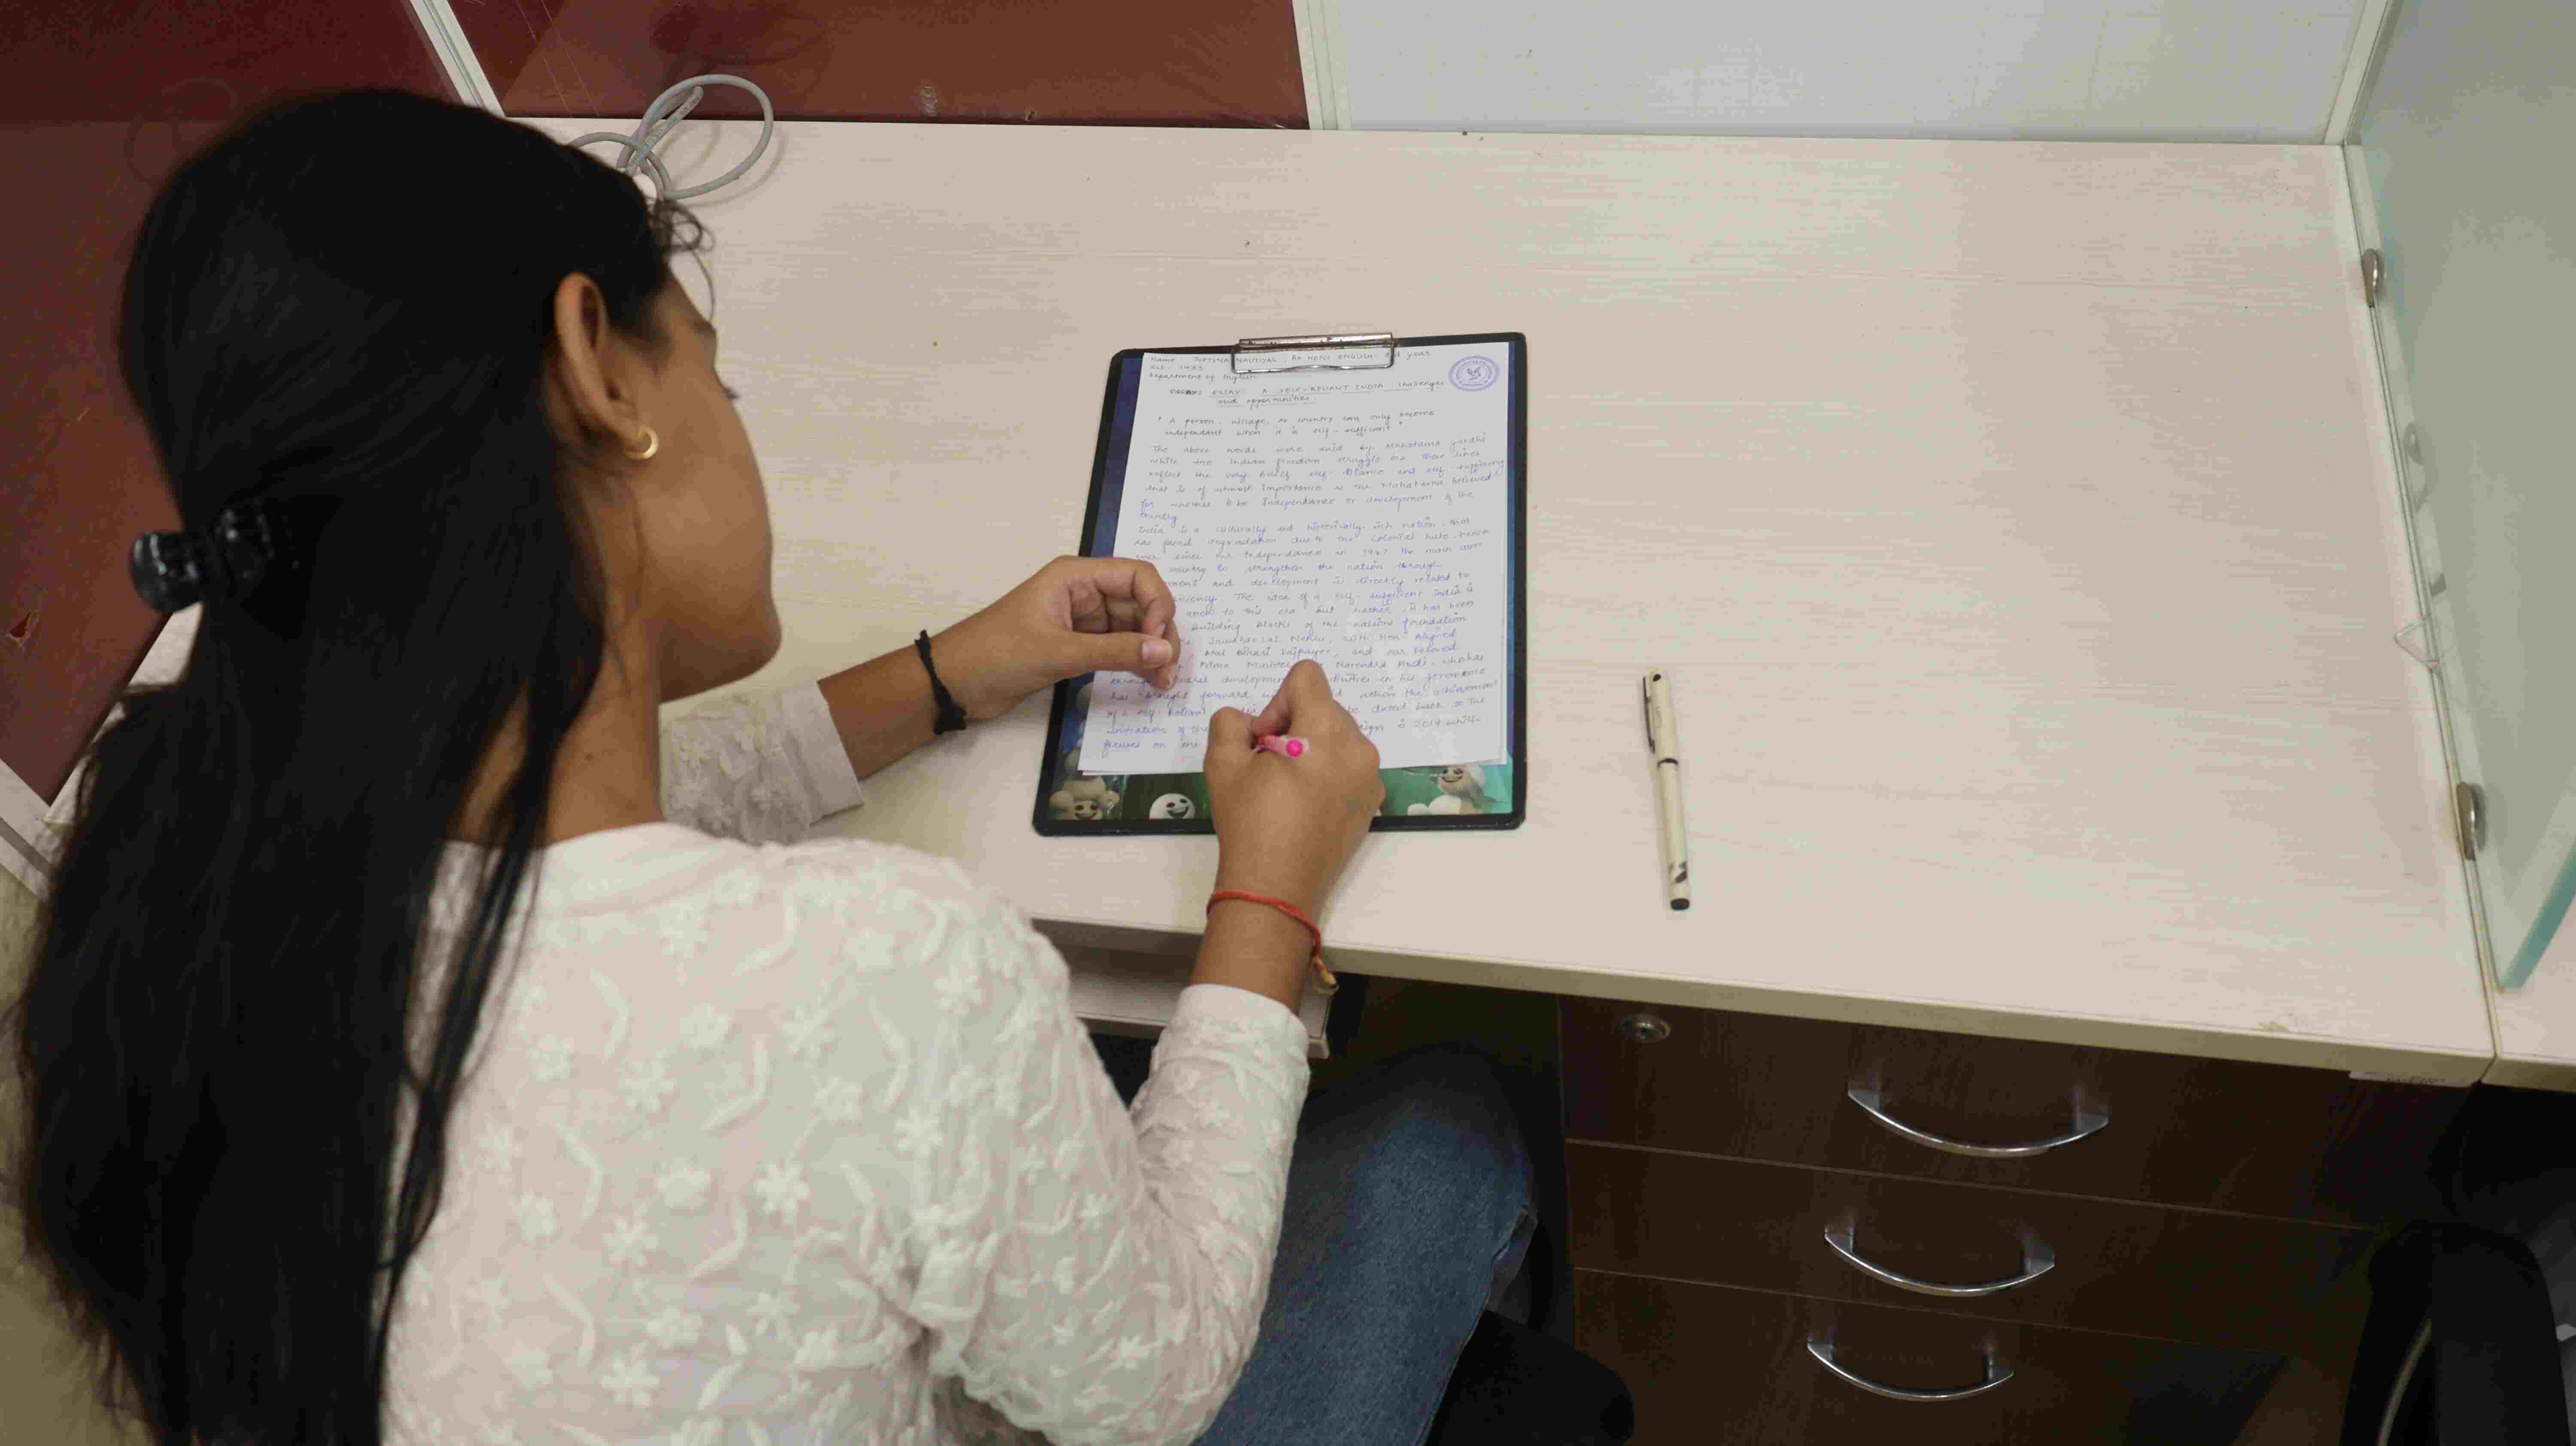 Name JYOTSNA NAUTIYAL. BA HONS ENGLISH- 3rd year
1433
Department of English
ESSAY: A SELF-RELIANT INDIA challenges
and opportunities
" A person, village, or country can only become
independent when it is self-sufficient"
The above words were said by Mahatama Gandhi
while the Indian freedom struggle These lines
reflect the very belief self-reliance and self-sufficiency
that is of utmost Importance as the Mahatama believed
for whether to be Independance or development of the
Country.
India is a culturally and historically rich nation, that
has faced degradation due to the Colonial rule, hence
ever since the Independance in 1947 the main aim
country to strengthen the nation through
and development is directly related to
The idea of a self-sufficient India is
to this era but rather it has been
Building Blocks of the nation foundation
Jawaharlal Nehru, with Non-Aligned
Atal Bihari Vajpayee, and our beloved
Prime Minister Narendra Modi, who has
through development in his governance
has brought forward action the achievement
of a self Reliant be dated back to the
initiation of the is 2014 which
focuses on the